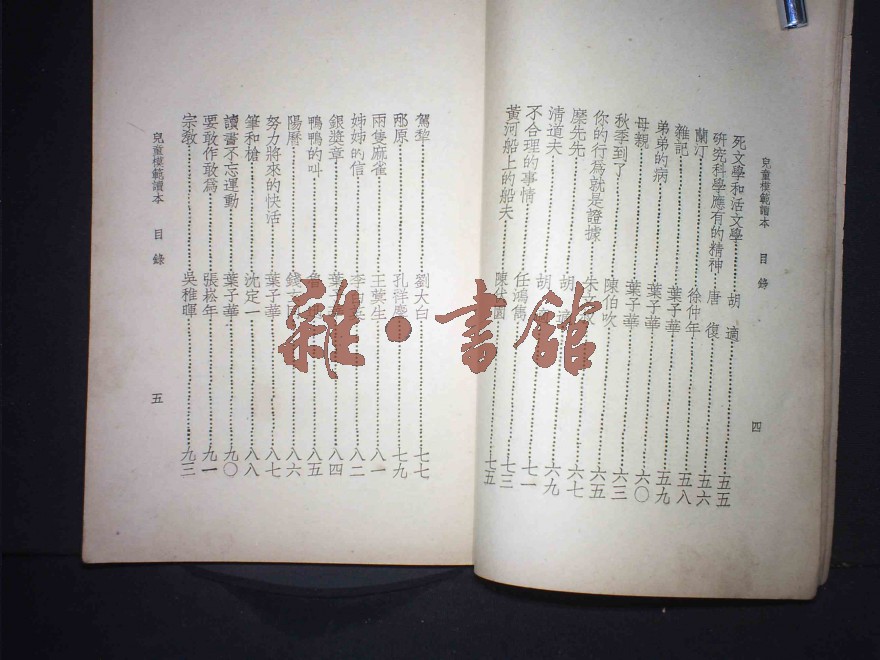 兒童模範讀本 目錄 四
死文學和活文學 胡適 五五
研究科學應有的精神 唐復 五六
蘭汀 徐仲年 五八
雜記 葉子華 五九
弟弟的病 葉子華 六〇
母親 葉子華 六三
秋季到了 陳伯吹 六五
你的行爲就是證據 朱 六七
差先先 胡適 六九
清道夫 胡 七一
不合理的事情 任鴻雋 七三
黃河船上的船夫 陳 七五
駕犂 劉大白 七七
邴原 孔祥慶 七九
兩隻麻雀 王蓂生 八一
姊姊的信 李白英 八二
銀獎章 葉 八四
鴨鴨的叫 魯 八五
陽曆 錢 八六
努力將來的快活 葉子華 八七
筆和槍 沈定一 八八
讀書不忘運動 葉子華 九〇
要敢作敢爲 張崧年 九一
宗教 吳稚暉 九三
兒童模範讀本 目錄 五
雜·書館